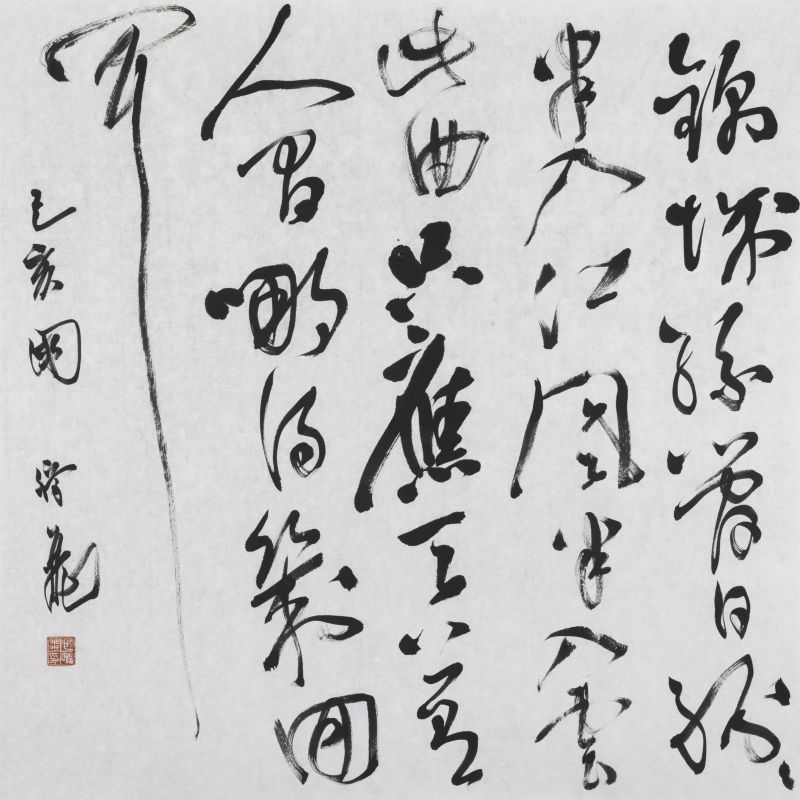 錦城絲管日紛々
半入江風半入雲
此曲只應天上有
人間哪得幾回
聞
己亥 龍